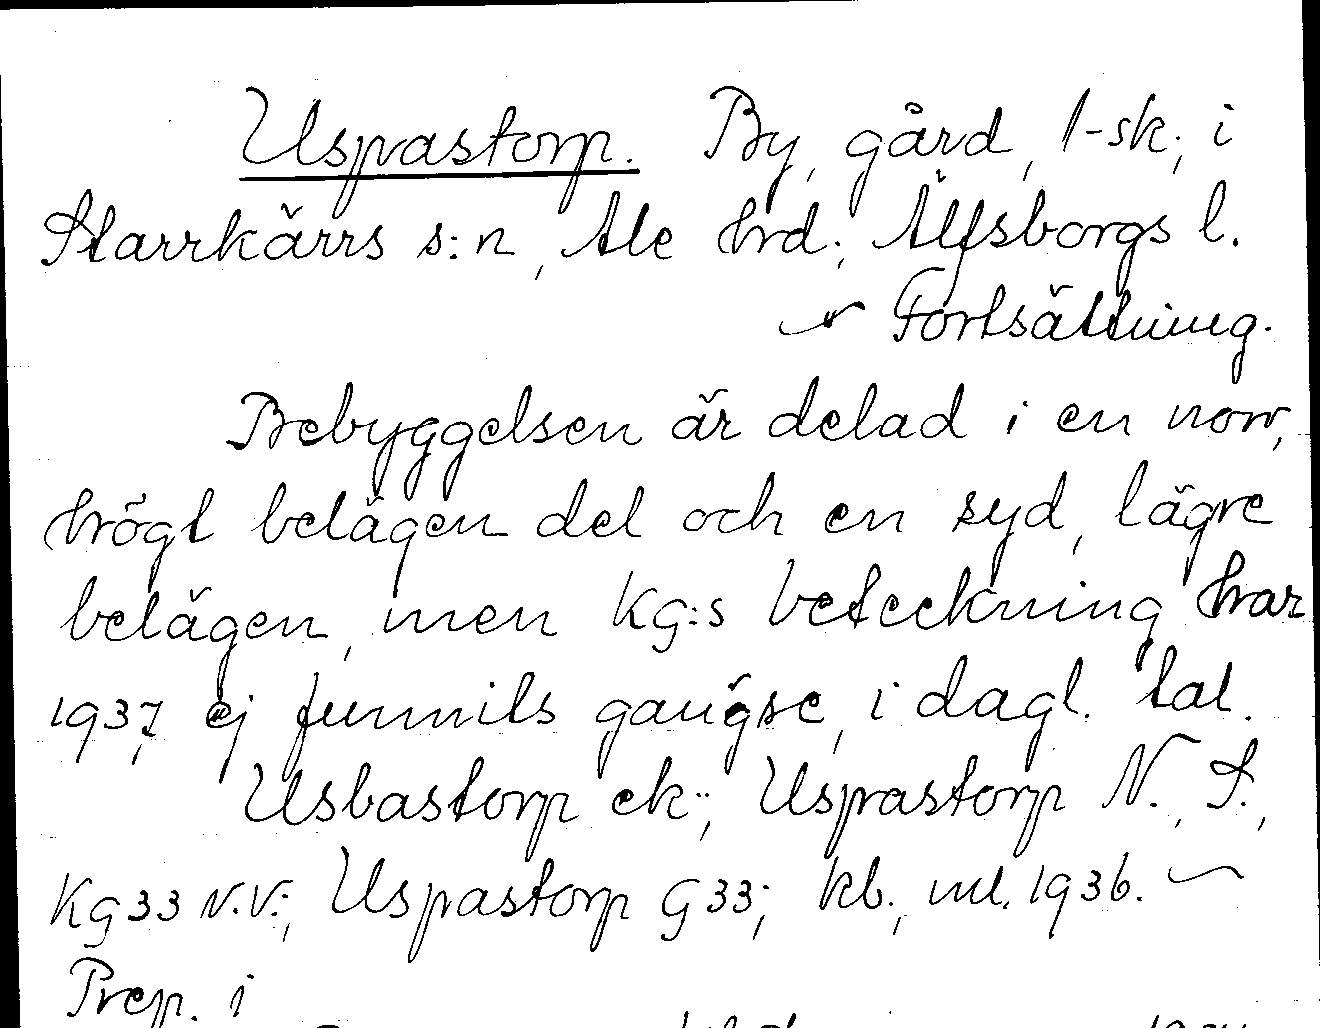 Uspastorp. By, gård, l-sk., i
Starrkärrs s:n, Ale hrd., Älfsborgs l.
Fortsättning.
Bebyggelsen är delad i en norr,
högt belägen del och en syd, lägre
belägen, men Kg:s beteckning har
1937, ej funnits gängse, i dagl. tal.
Usbastorp ek.; Uspastorp N., S.,
Kg 33 N.V.; Uspastorp G33; kb., ml. 1936.
Prep. i